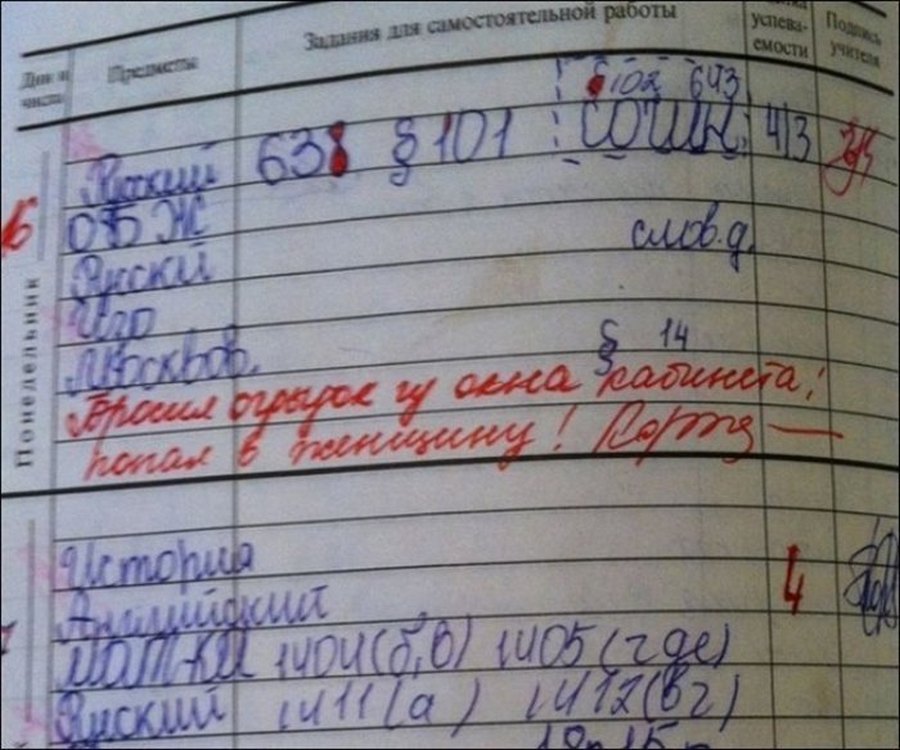 Дни и числа Предметы Задания для самостоятельной работы успева-емости Подпись учителя
102 643
Русский 638 § 101 СОЧИН. 4/3
16 ОБЖ
слов.д.
Русский
Изо
Москвов. § 14
Бросил огрызок из окна кабинета!
попал в женщину!
Понедельник
История
Английский 4
МАТ-КА 1404(б,в) 1405(г де)
Руский 1411(а) 1412(в г)